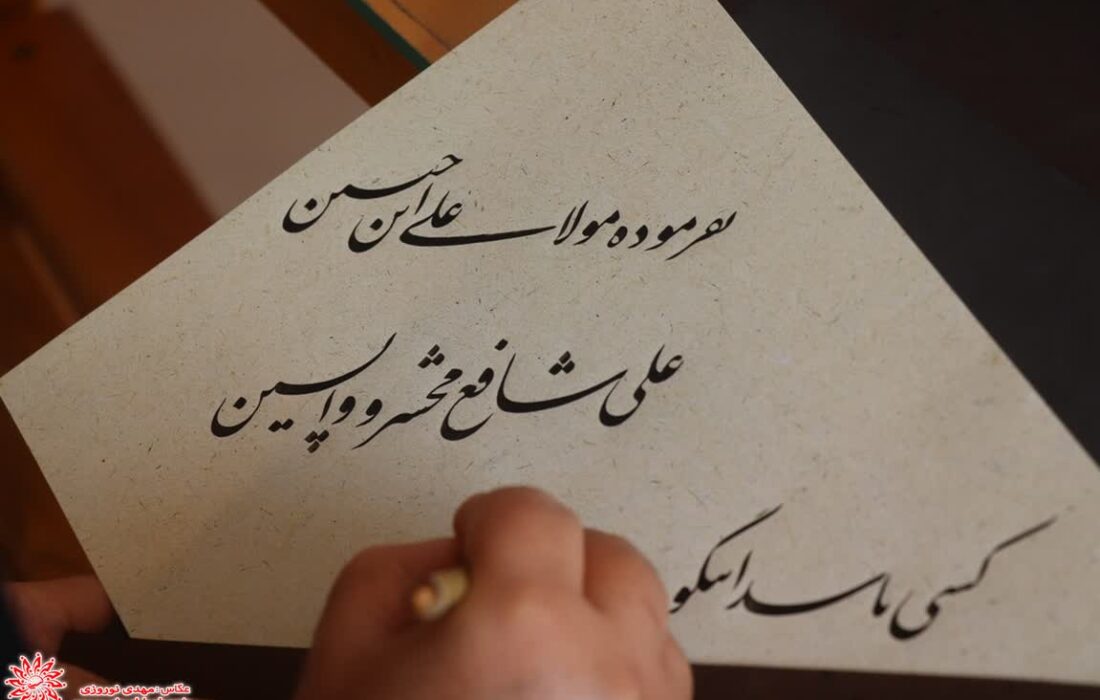 بفرموده مولا علی ابن حسین
علی شافع محشر و واپسین
کسی باشد نیکو
عکاس : مهدی نوروزی